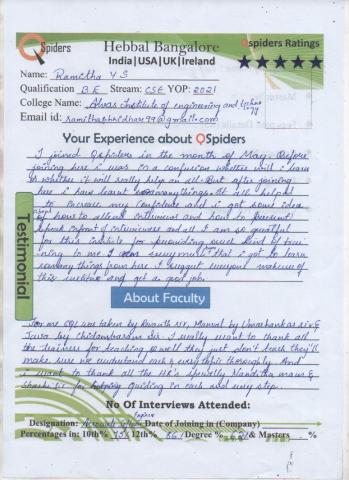 QSpiders
Hebbal Bangalore
India|USA|UK|Ireland
Qspiders Ratings
Name: Ramitha Y S
Qualification BE Stream: CSE YOP: 2021
College Name: Alvas Institute of engineering and technology
Email id:
Your Experience about QSpiders
I joined Qspiders in the month of May. Before
joining here i was in a confusion whether will i learn
or whether it will really help an all. But after joining
here i have learnt so many things. It all helped
to increase my confidence and i got some idea
about how to attend interviews and how to present
infront of interviewers and all. I am so grateful
for this institute for providing such kind of trai
ning to me. I am very much that i got to learn
so many things from here. I suggest everyone make use of
this institute and get a good job.
Testimonial
About Faculty
For me SQL was taken by sir, Manual by Umashankar sir &
Java by Chidambaram sir. I really want to thank all
the trainers for teaching well they just don't teach they'll
make sure we understand each & every topic thoroughly. And
i want to thank all the HR's specially Nanditha mam &
for guiding in each and every step.
No Of Interviews Attended:
Designation: Associate Engineer Date of Joining in (Company)
Percentages in: 10th% 12th% Degree % & Masters - %